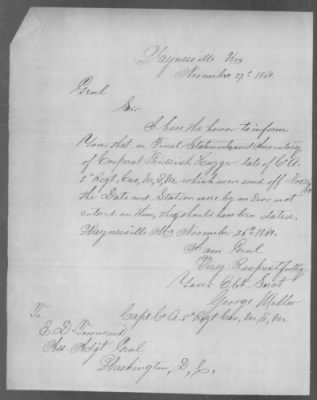 Waynesville Mo
November 27th 1864
Genl
Sir
I have the honor to inform
you that on Final Statements and Inventory
of Corporal Fredrich Hoppe late of Co A
5" Regt, Cav, M, S, M which were send off Nov 26/64
the Date and Station were by an Error not
entered on them, they should have been dated,
Waynesville Mo November 26th 1864.
I am Genl
Very Respectfully
Your Obt Servt
George Muller
Capt Co A. 5" Regt Cav, M. S, M
To
E. D. Townsend
Ass Adjt Genl
Washington, D, C,